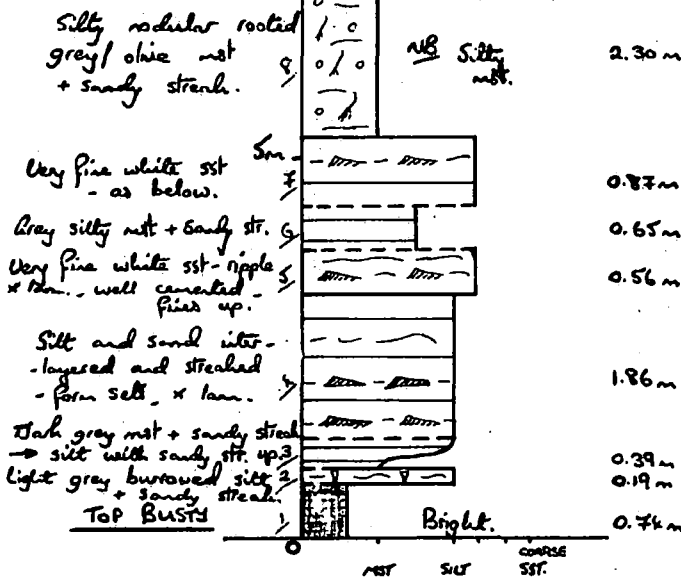 Silty nodular rooted
grey/olive mst
+ sandy streak.
8
NB Silty
mst.
2.30 m
5m
Very fine white sst
- as below.
7
0.87 m
Grey silty mst + Sandy str.
6
0.65 m
Very fine white sst - ripple
x lam. - well cemented -
fines up.
5
0.56 m
Silt and sand inter-
-layered and streaked
- form sets, x lam.
4
1.86 m
Dark grey mst + sandy streak
→ silt with sandy str. up.
3
0.39 m
Light grey burrowed silt
+ sandy streak.
2
0.19 m
TOP BUSTY
1
Bright.
0.74 m
0
MST SILT COARSE
SST.